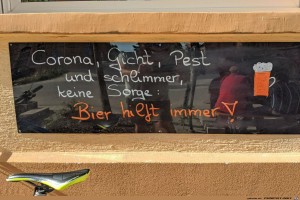 Corona, Gicht, Pest
und schlimmer,
keine Sorge:
Bier hilft immer!